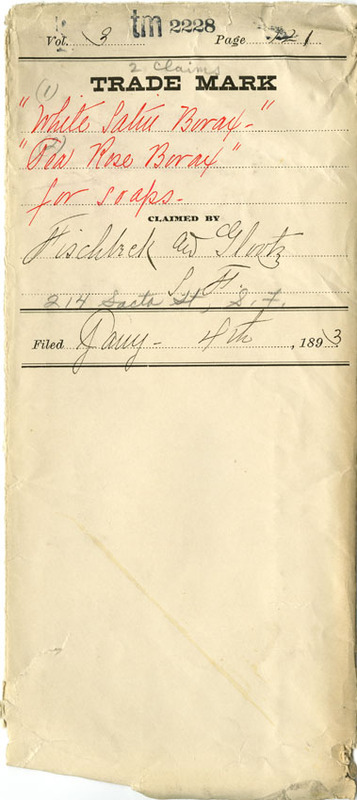 Vol. 3 tm 2228 Page 221
2 Claims
TRADE MARK
(1)
"White Satin Borax-"
(2)
"Tea Rose Borax"
for soaps-
CLAIMED BY
Fischbeck and Glootz
S. F.
214 Sacto St, S. F.
Filed Jany- 4th, 1893